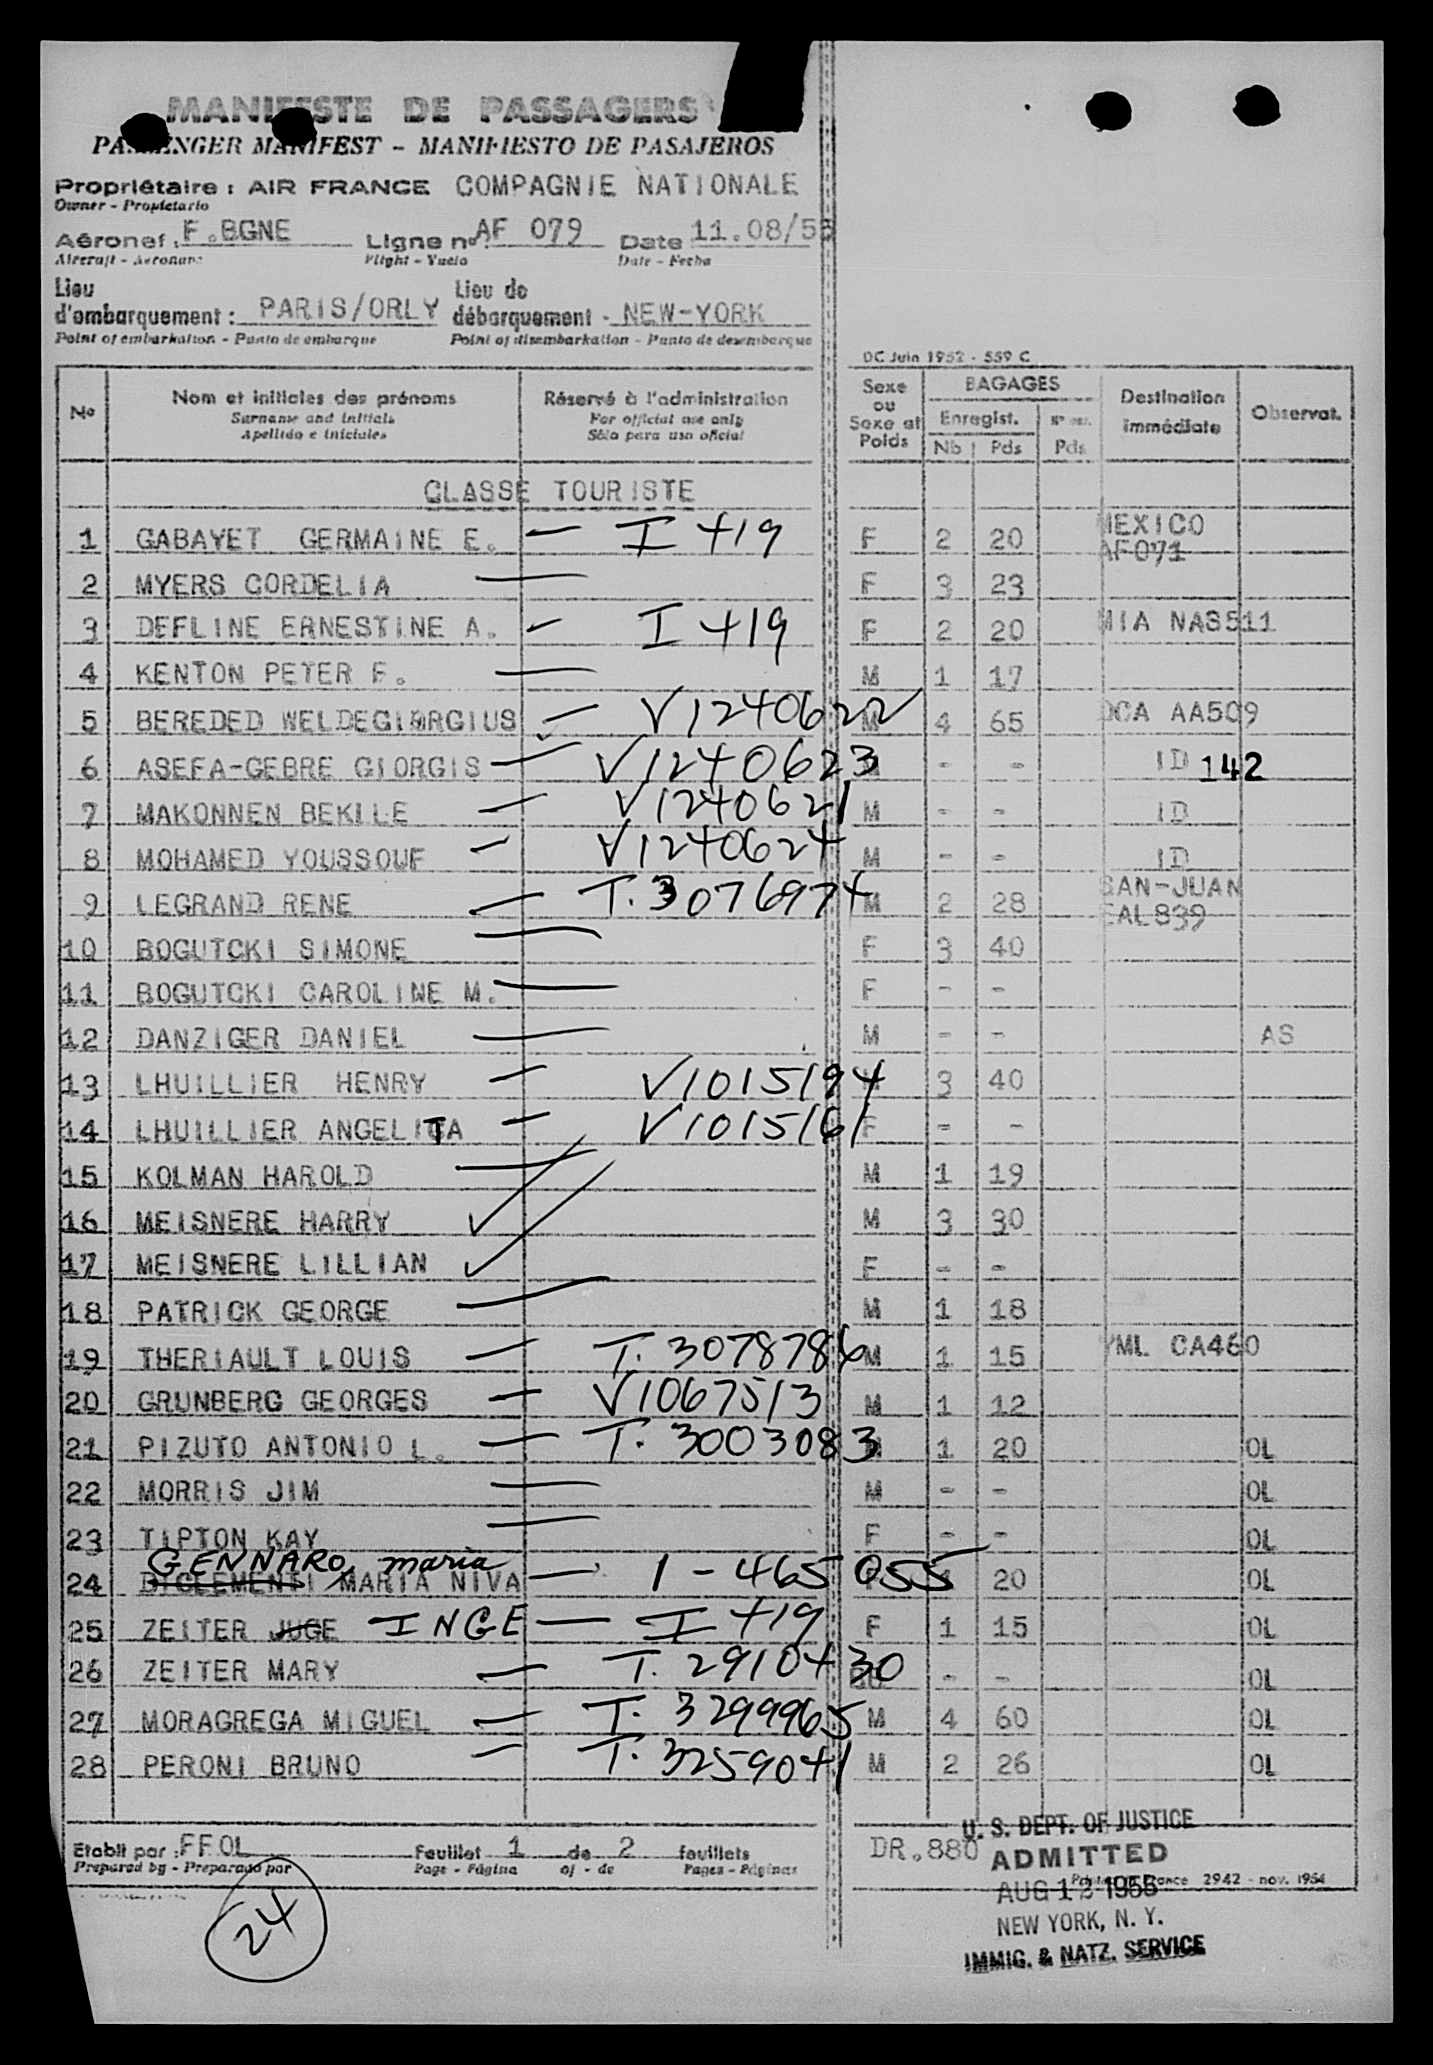 MANIFESTE DE PASSAGERS
PASSENGER MANIFEST - MANIFIESTO DE PASAJEROS
Propriétaire : AIR FRANCE COMPAGNIE NATIONALE
Owner - Propietario
Aéronef : F.BGNE Ligne n° AF 079 Date 11.08/55
Aircraft - Aeronave Flight - Vuelo Date - Fecha
Lieu d'embarquement : PARIS/ORLY Lieu de débarquement - NEW-YORK
Point of embarkation - Punto de embarque Point of disembarkation - Punto de desembarque
DC Juin 1952 - 559 C
No Nom et initiales des prénoms Réservé à l'administration Sexe ou Sexe et Poids BAGAGES Destination immédiate Observat.
Surname and initials For official use only Enregist.
Apellido e iniciales Sólo para uso oficial Nb Pds Pds
CLASSE TOURISTE
1 GABAYET GERMAINE E. — I 419 F 2 20 MEXICO AF071
2 MYERS CORDELIA — F 3 23
3 DEFLINE ERNESTINE A. — I 419 F 2 20 MIA NA8511
4 KENTON PETER F. — M 1 17
5 BEREDED WELDEGIORGIUS — V1240622 M 4 65 DCA AA509
6 ASEFA-GEBRE GIORGIS — V1240623 - - ID 142
7 MAKONNEN BEKILE — V1240621 M - - ID
8 MOHAMED YOUSSOUF — V1240624 M - - ID
9 LEGRAND RENE — T.3076974 M 2 28 SAN-JUAN EAL839
10 BOGUTCKI SIMONE — F 3 40
11 BOGUTCKI CAROLINE M. — F - -
12 DANZIGER DANIEL — M - - AS
13 LHUILLIER HENRY — V1015194 3 40
14 LHUILLIER ANGELITA — V1015161 F - -
15 KOLMAN HAROLD — M 1 19
16 MEISNERE HARRY ✓ M 3 30
17 MEISNERE LILLIAN ✓ F - -
18 PATRICK GEORGE — M 1 18
19 THERIAULT LOUIS — T. 3078786 M 1 15 YML CA460
20 GRUNBERG GEORGES — V1067513 M 1 12
21 PIZUTO ANTONIO L. — T. 3003083 1 20 OL
22 MORRIS JIM — M - - OL
23 TIPTON KAY — F - - OL
GENNARO, maria
24 DICLEMENTI MARIA NIVA — 1-465 055 20 OL
25 ZEITER JUGE INGE — I 419 F 1 15 OL
26 ZEITER MARY — T. 2910430 - - OL
27 MORAGREGA MIGUEL — T. 3299965 M 4 60 OL
28 PERONI BRUNO — T. 3259041 M 2 26 OL
Etabli par : FFOL Feuillet 1 de 2 feuillets DR.880
Prepared by - Preparado por Page - Página of - de Pages - Páginas
24
U. S. DEPT. OF JUSTICE
ADMITTED
2942 - nov. 1954
AUG 12 1955
NEW YORK, N. Y.
IMMIG. & NATZ. SERVICE